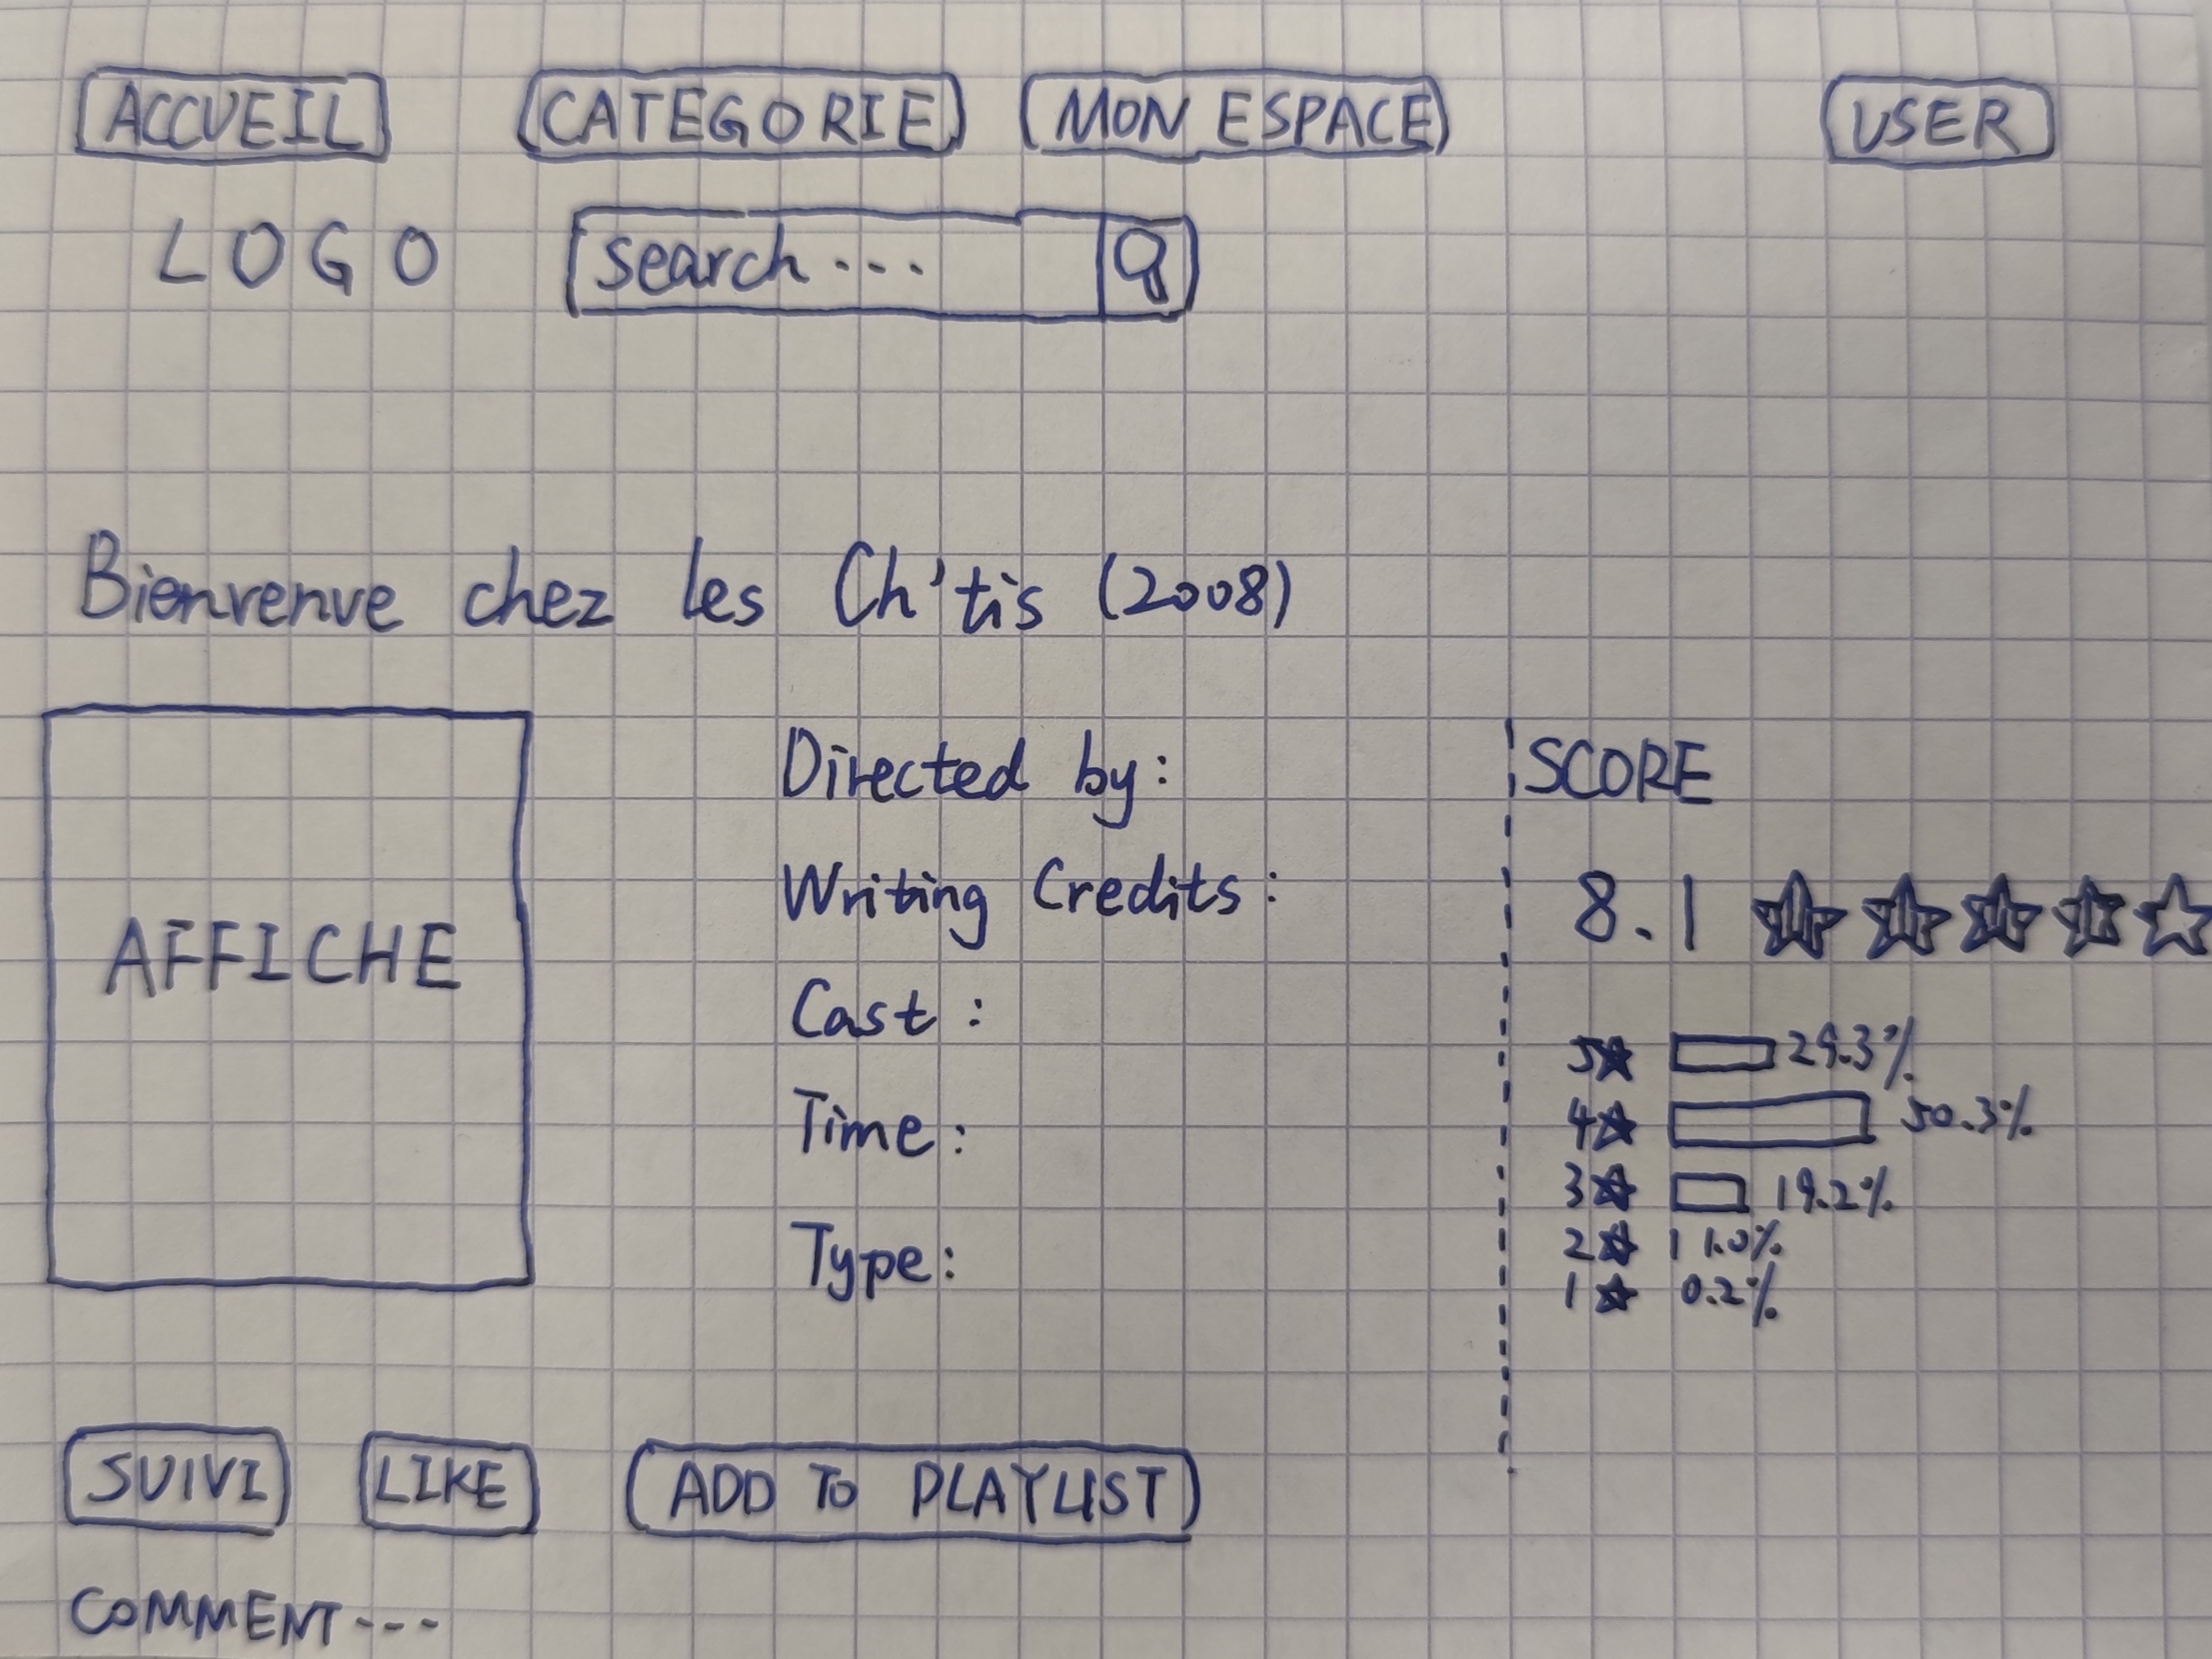 ACCUEIL CATEGORIE MON ESPACE USER
LOGO search...
Bienvenue chez les Ch'tis (2008)
AFFICHE
Directed by:
Writing Credits:
Cast:
Time:
Type:
SCORE
8.1 ★★★★☆
5★ 29.3%
4★ 50.3%
3★ 19.2%
2★ 1.0%
1★ 0.2%
SUIVI LIKE ADD TO PLAYLIST
COMMENT---